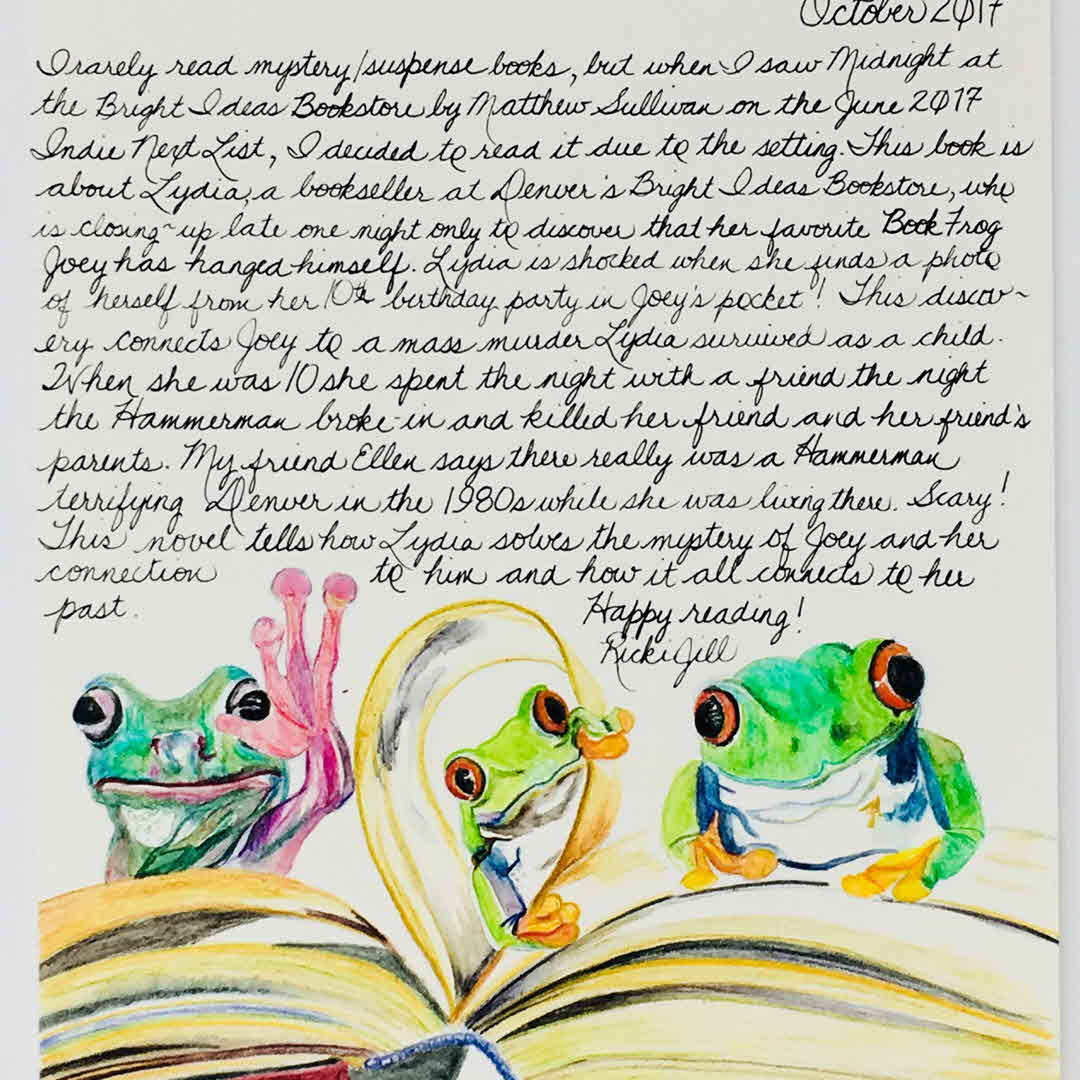 October 2017
I rarely read mystery/suspense books, but when I saw Midnight at
the Bright Ideas Bookstore by Matthew Sullivan on the June 2017
Indie Next List, I decided to read it due to the setting. This book is
about Lydia, a bookseller at Denver's Bright Ideas Bookstore, who
is closing-up late one night only to discover that her favorite Book Frog
Joey has hanged himself. Lydia is shocked when she finds a photo
of herself from her 10th birthday party in Joey's pocket! This discov-
ery connects Joey to a mass murder Lydia survived as a child.
When she was 10 she spent the night with a friend the night
the Hammerman broke-in and killed her friend and her friend's
parents. My friend Ellen says there really was a Hammerman
terrifying Denver in the 1980s while she was living there. Scary!
This novel tells how Lydia solves the mystery of Joey and her
connection to him and how it all connects to her
past. Happy reading!
Ricki Jill